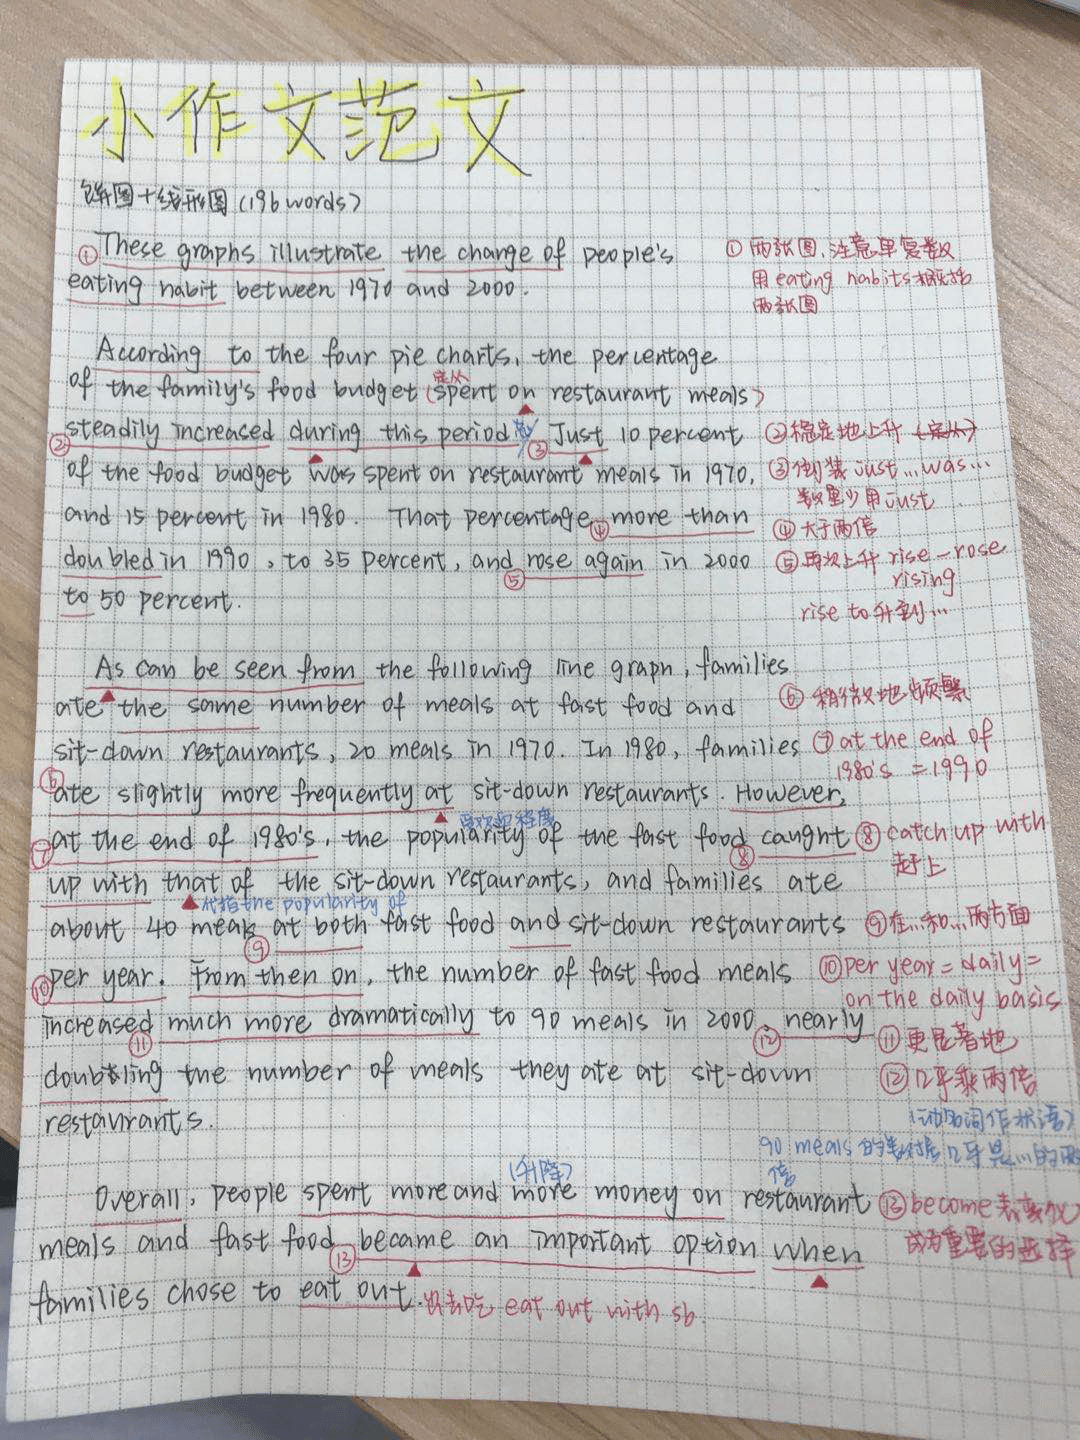 小作文范文
饼图+线形图(196 words)
①These graphs illustrate the change of people's
eating habit between 1970 and 2000.
① 两张图,注意单复数
用eating habits概括
两张图
According to the four pie charts, the percentage
of the family's food budget (spent on restaurant meals)
定从
②steadily increased during this period. ③Just 10 percent
②稳定地上升(定从)
of the food budget was spent on restaurant meals in 1970,
③倒装just...was...
数量少用just
and 15 percent in 1980. That percentage ④more than
④大于两倍
doubled in 1990, to 35 percent, and ⑤rose again in 2000
⑤再次上升 rise-rose
rising
to 50 percent.
rise to升到...
As can be seen from the following line graph, families
ate the same number of meals at fast food and
⑥稍微地频繁
sit-down restaurants, 20 meals in 1970. In 1980, families
⑦at the end of
1980's =1990
⑥ate slightly more frequently at sit-down restaurants. However,
受欢迎程度
⑦at the end of 1980's, the popularity of the fast food ⑧caught
⑧catch up with
赶上
up with that of the sit-down restaurants, and families ate
代指the popularity of
about 40 meals ⑨at both fast food and sit-down restaurants
⑨在...和...两方面
⑩per year. From then on, the number of fast food meals
⑩per year=daily=
on the daily basis
increased ⑪much more dramatically to 90 meals in 2000, ⑫nearly
⑪更显著地
doubling the number of meals they ate at sit-down
⑫几乎乘两倍
restaurants.
(动名词作状语)
90 meals 的 几乎是...的两
倍
(升降)
Overall, people spent more and more money on restaurant
⑬become表变化
meals and fast food ⑬became an important option when
成为重要的选择
families chose to eat out. 出去吃 eat out with sb.